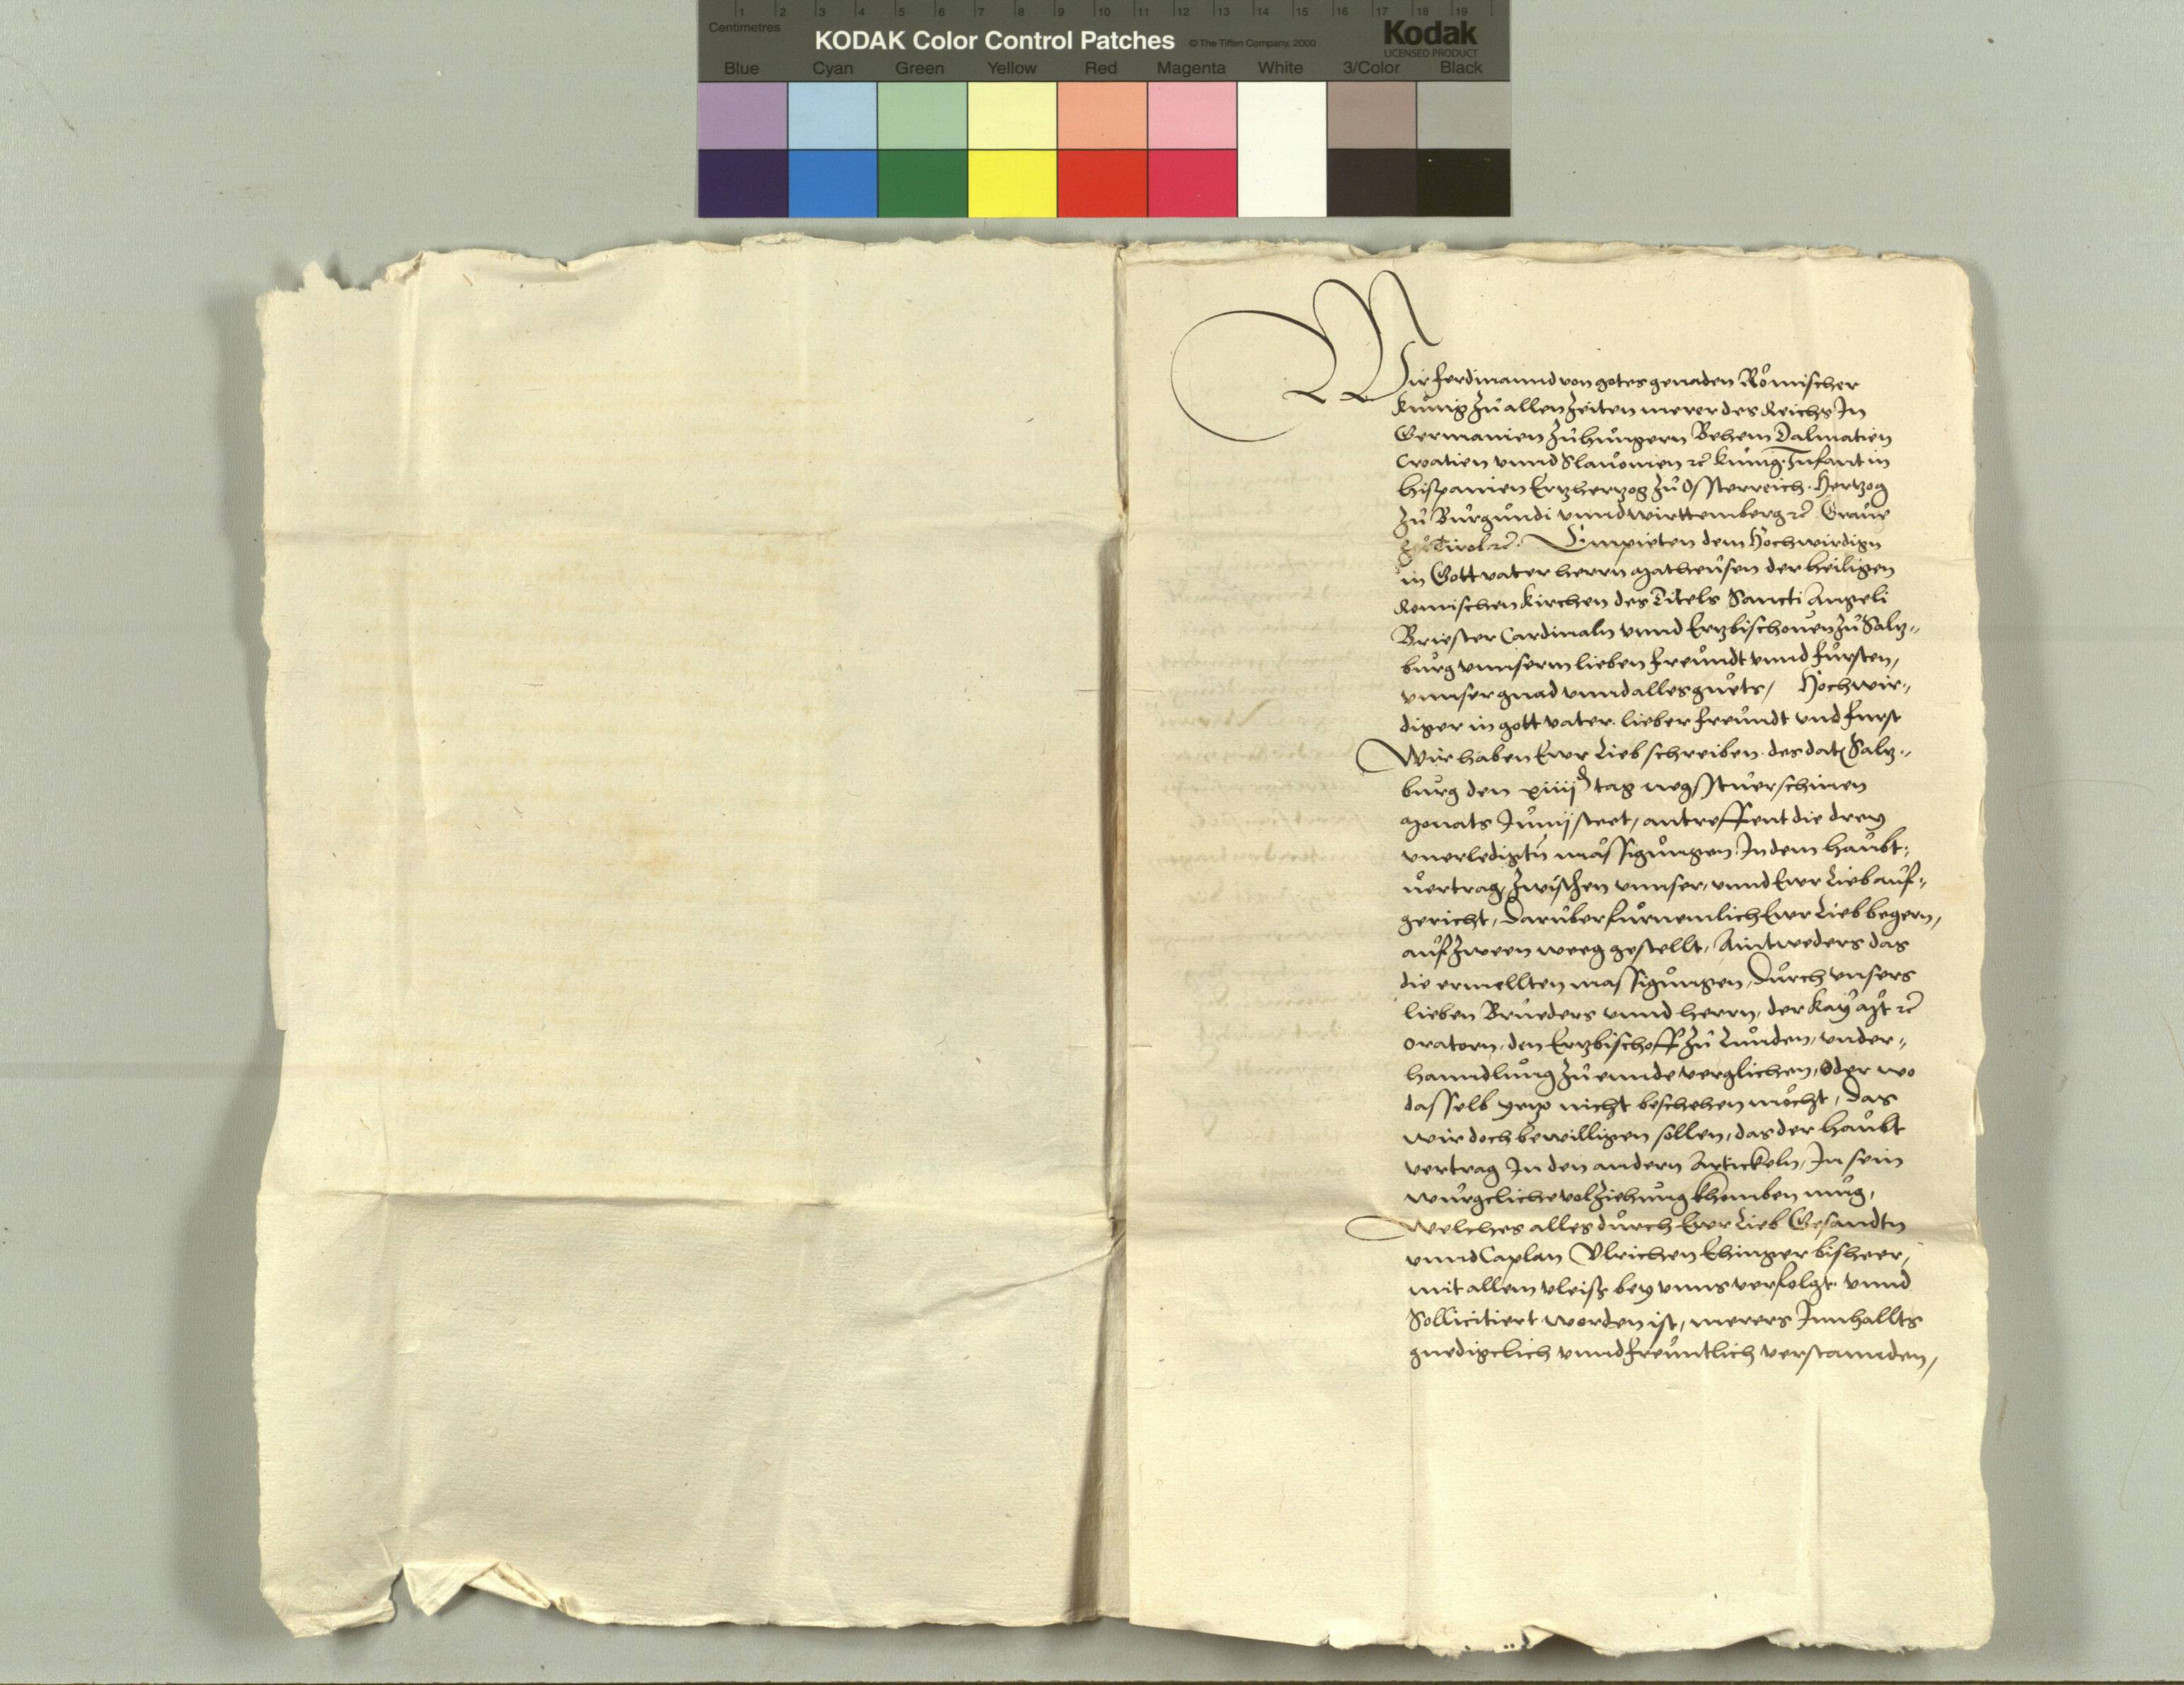 1 2 3 4 5 6 7 8 9 10 11 12 13 14 15 16 17 18 19
Centimetres
KODAK Color Control Patches © The Tiffen Company, 2000 Kodak
LICENSED PRODUCT
Blue Cyan Green Yellow Red Magenta White 3/Color Black
Wir Ferdinannd von gotes genaden Römischer
Kunig zu allen Zeiten merer des Reichs In
Germanien zu Hungern Behem Dalmatien
Croatien unnd Slavonien rc Kunig Infant in
Hispanien Ertzhertzog zu Osterreich Hertzog
zu Burgundi unnd Wirttemberg rc Grave
zu Tirol rc. Empieten dem Hochwirdign
in Gott vater herrn Matheusen der heiligen
Romischen Kirchen des Titels Sancti Angeli
Briester Cardinaln unnd Ertzbischoven zu Saltz⸗
burg unnserm lieben Freundt unnd Fürsten,
unnser gnad unnd alles guets, Hochwir⸗
diger in gott vater lieber Freundt und Furst
Wir haben Ewr Lieb schreiben des dat Saltz⸗
burg den xiiij tag negst verschinen
Monats Junij steet, antreffent die drey
unerledigtn mässigungen In dem haubt⸗
vertrag, zwischen unnser, unnd Ewr Lieb auf⸗
gericht, Darüber furnemlich Ewr Lieb begern,
auf zween weeg gestellt, Aintweders das
die ermellten massigungen, Durch unsers
lieben Brueders unnd herrn, der Kay Mt rc
Oratorn, den Ertzbischoff zu Lunden, under⸗
hanndlung zu ennde verglichen, Oder wo
dasselb yetzo nicht beschehen möcht, Das
wir doch bewilligen sollen, das der haubt
vertrag In den andern Artickeln, In sein
würgcliche volziehung khomben mug,
Welches alles durch Ewr Lieb Gesandtn
unnd Caplan Ulrichen Ehinger bisheer,
mit allem vleiß bey unns verfolgt unnd
Sollicitiert worden ist, merers Innhallts
gnedigclich unnd freuntlich verstannden,